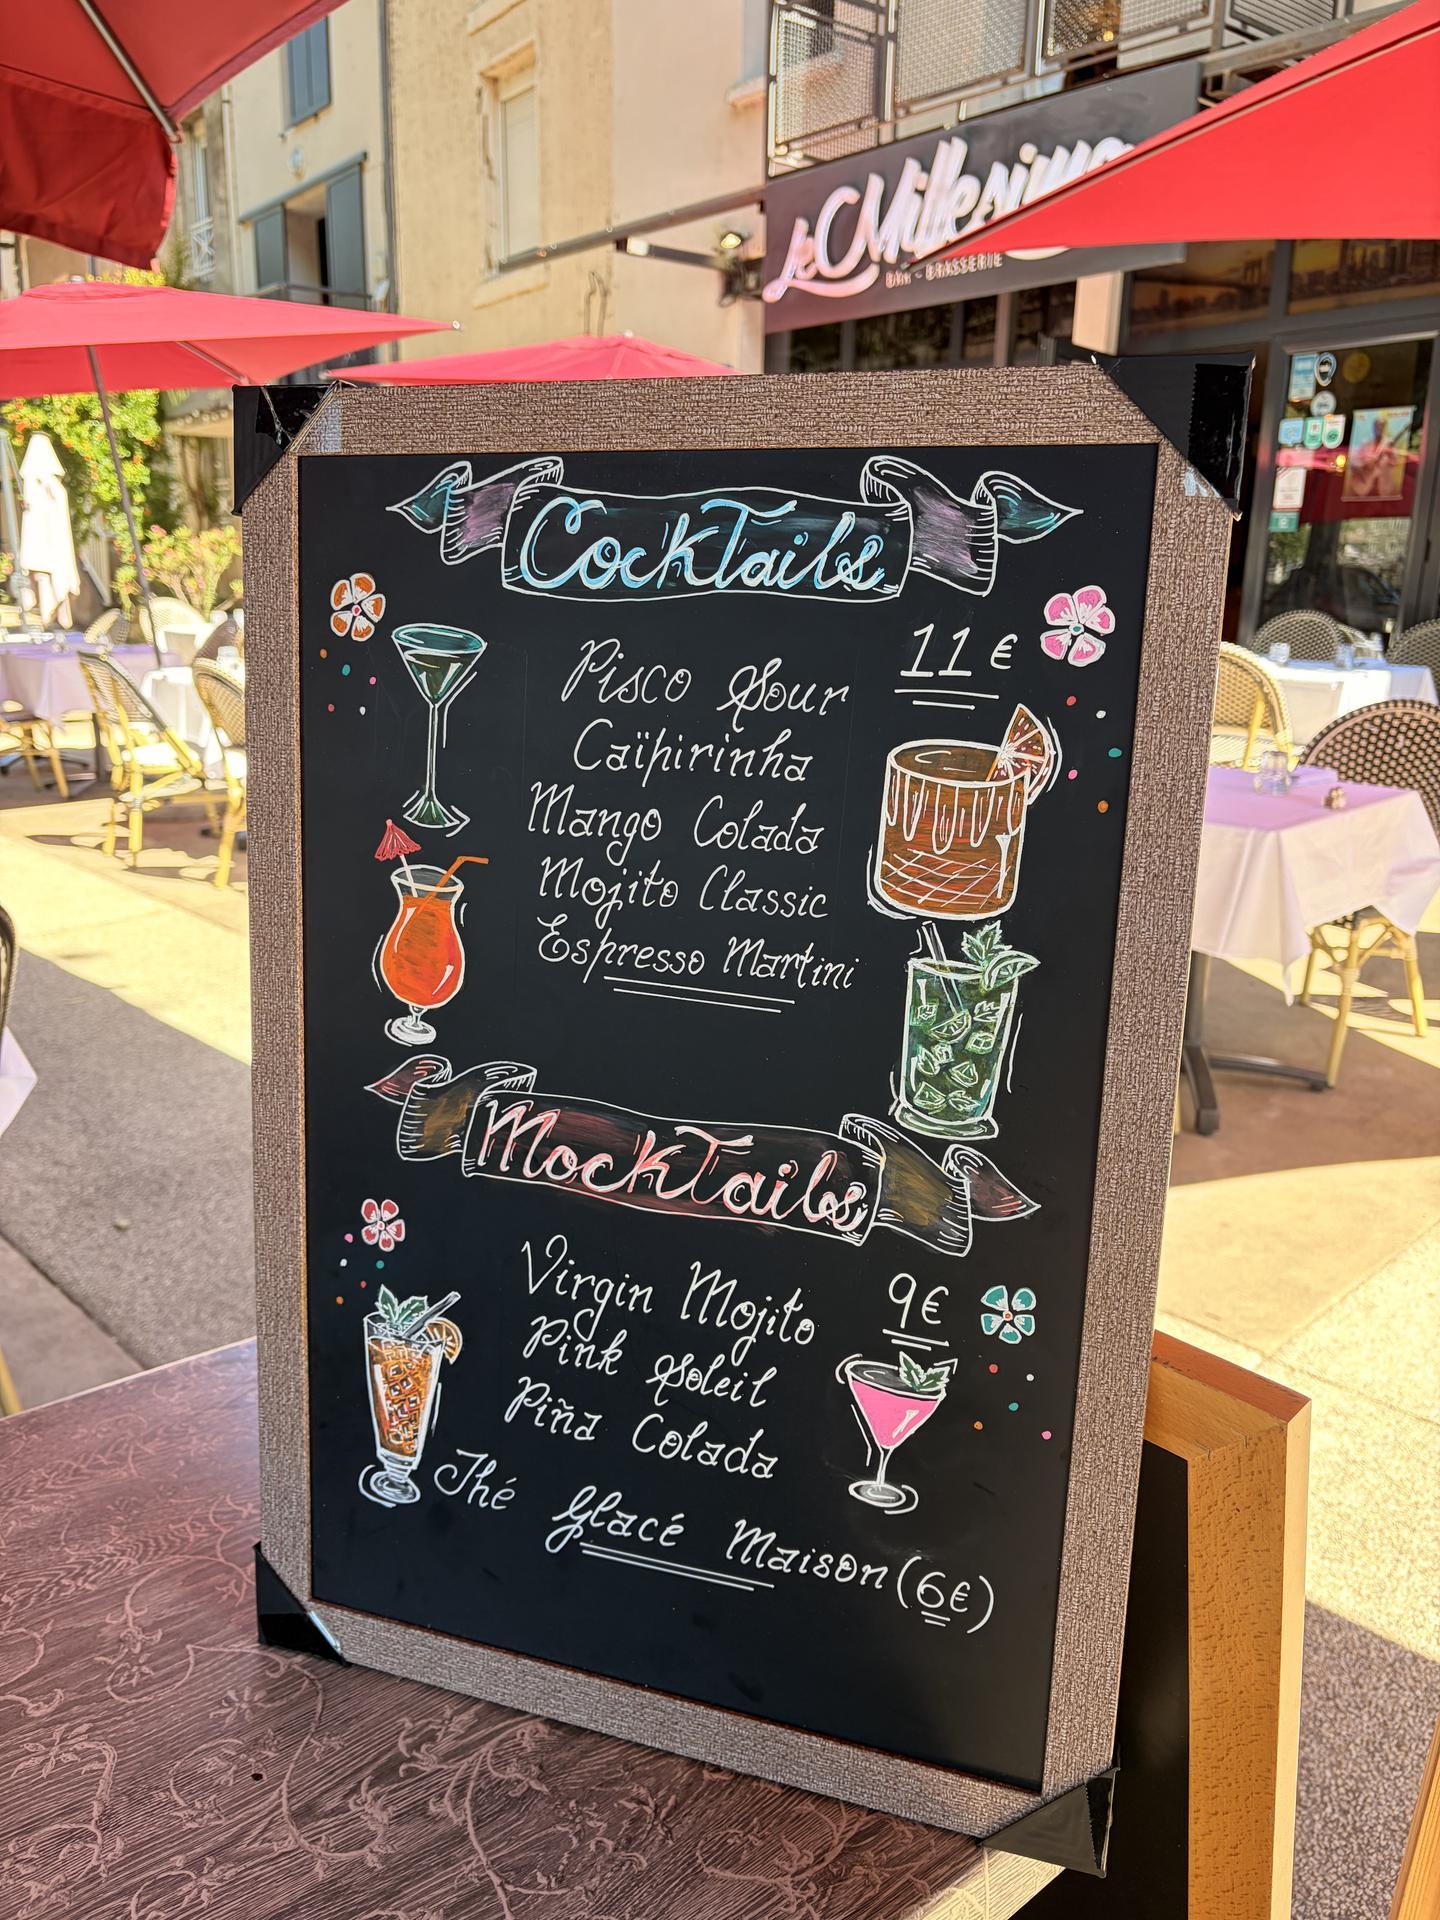 Le Millesime
BAR - BRASSERIE
CockTails
11 €
Pisco Sour
Caïpirinha
Mango Colada
Mojito Classic
Espresso Martini
MockTails
9€
Virgin Mojito
Pink Soleil
Piña Colada
Thé Glacé Maison (6€)